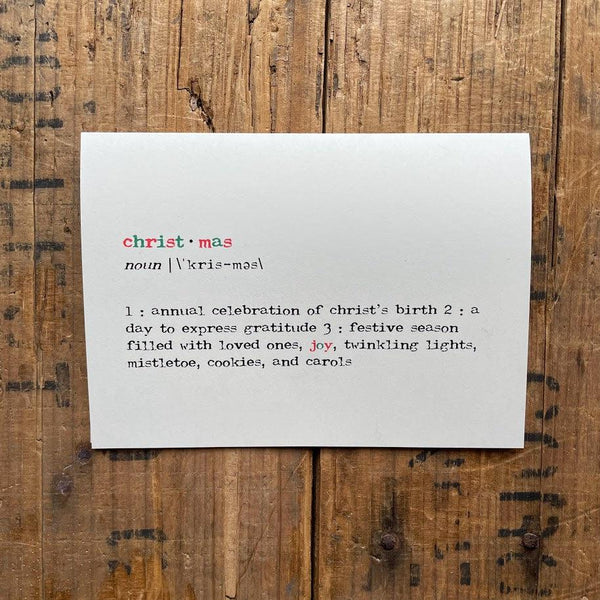 christ·mas
noun |\ˈkris-məs\
1 : annual celebration of christ's birth 2 : a
day to express gratitude 3 : festive season
filled with loved ones, joy, twinkling lights,
mistletoe, cookies, and carols